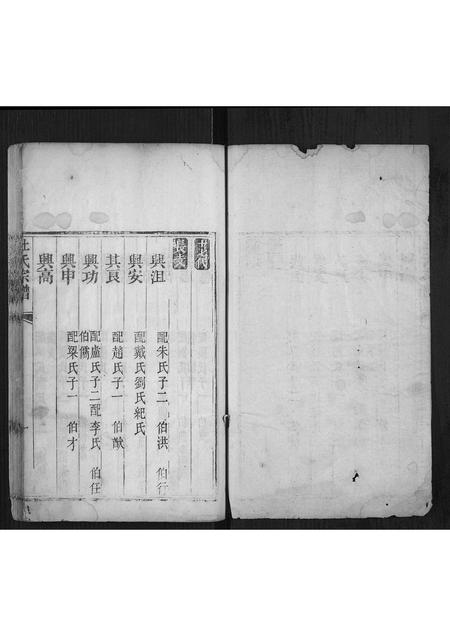 長支
興沮 配朱氏子二 伯洪 伯行
興安 配戴氏劉氏紀氏
其良 配趙氏子一 伯猷
興功 配盧氏子二配李氏 伯任 伯儒
興申 配梁氏子一 伯才
興高
杜氏宗譜